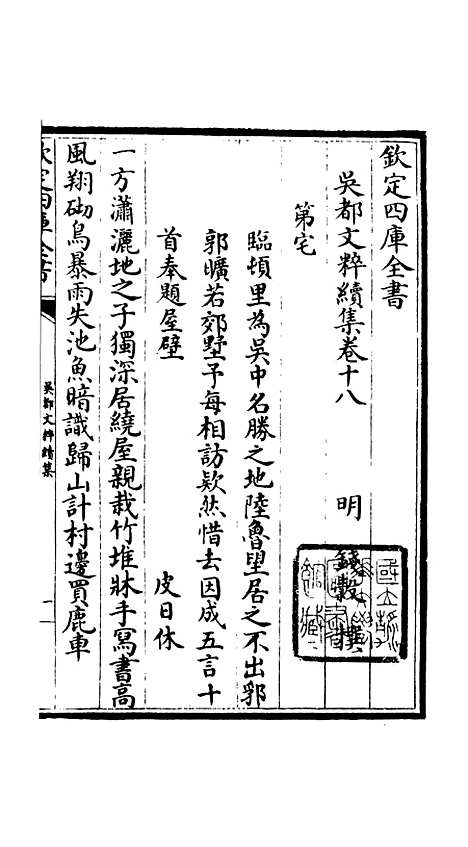 欽定四庫全書
吳都文粹續集卷十八
明 錢榖 撰
第宅
臨頓里為吳中名勝之地陸魯望居之不出郛
郭曠若郊墅予每相訪欵然惜去因成五言十
首奉題屋壁
皮日休
一方瀟灑地之子獨深居繞屋親栽竹堆牀手寫書高
風翔砌鳥暴雨失池魚暗識歸山計村邊買鹿車
欽定四庫全書
吳都文粹續集
一